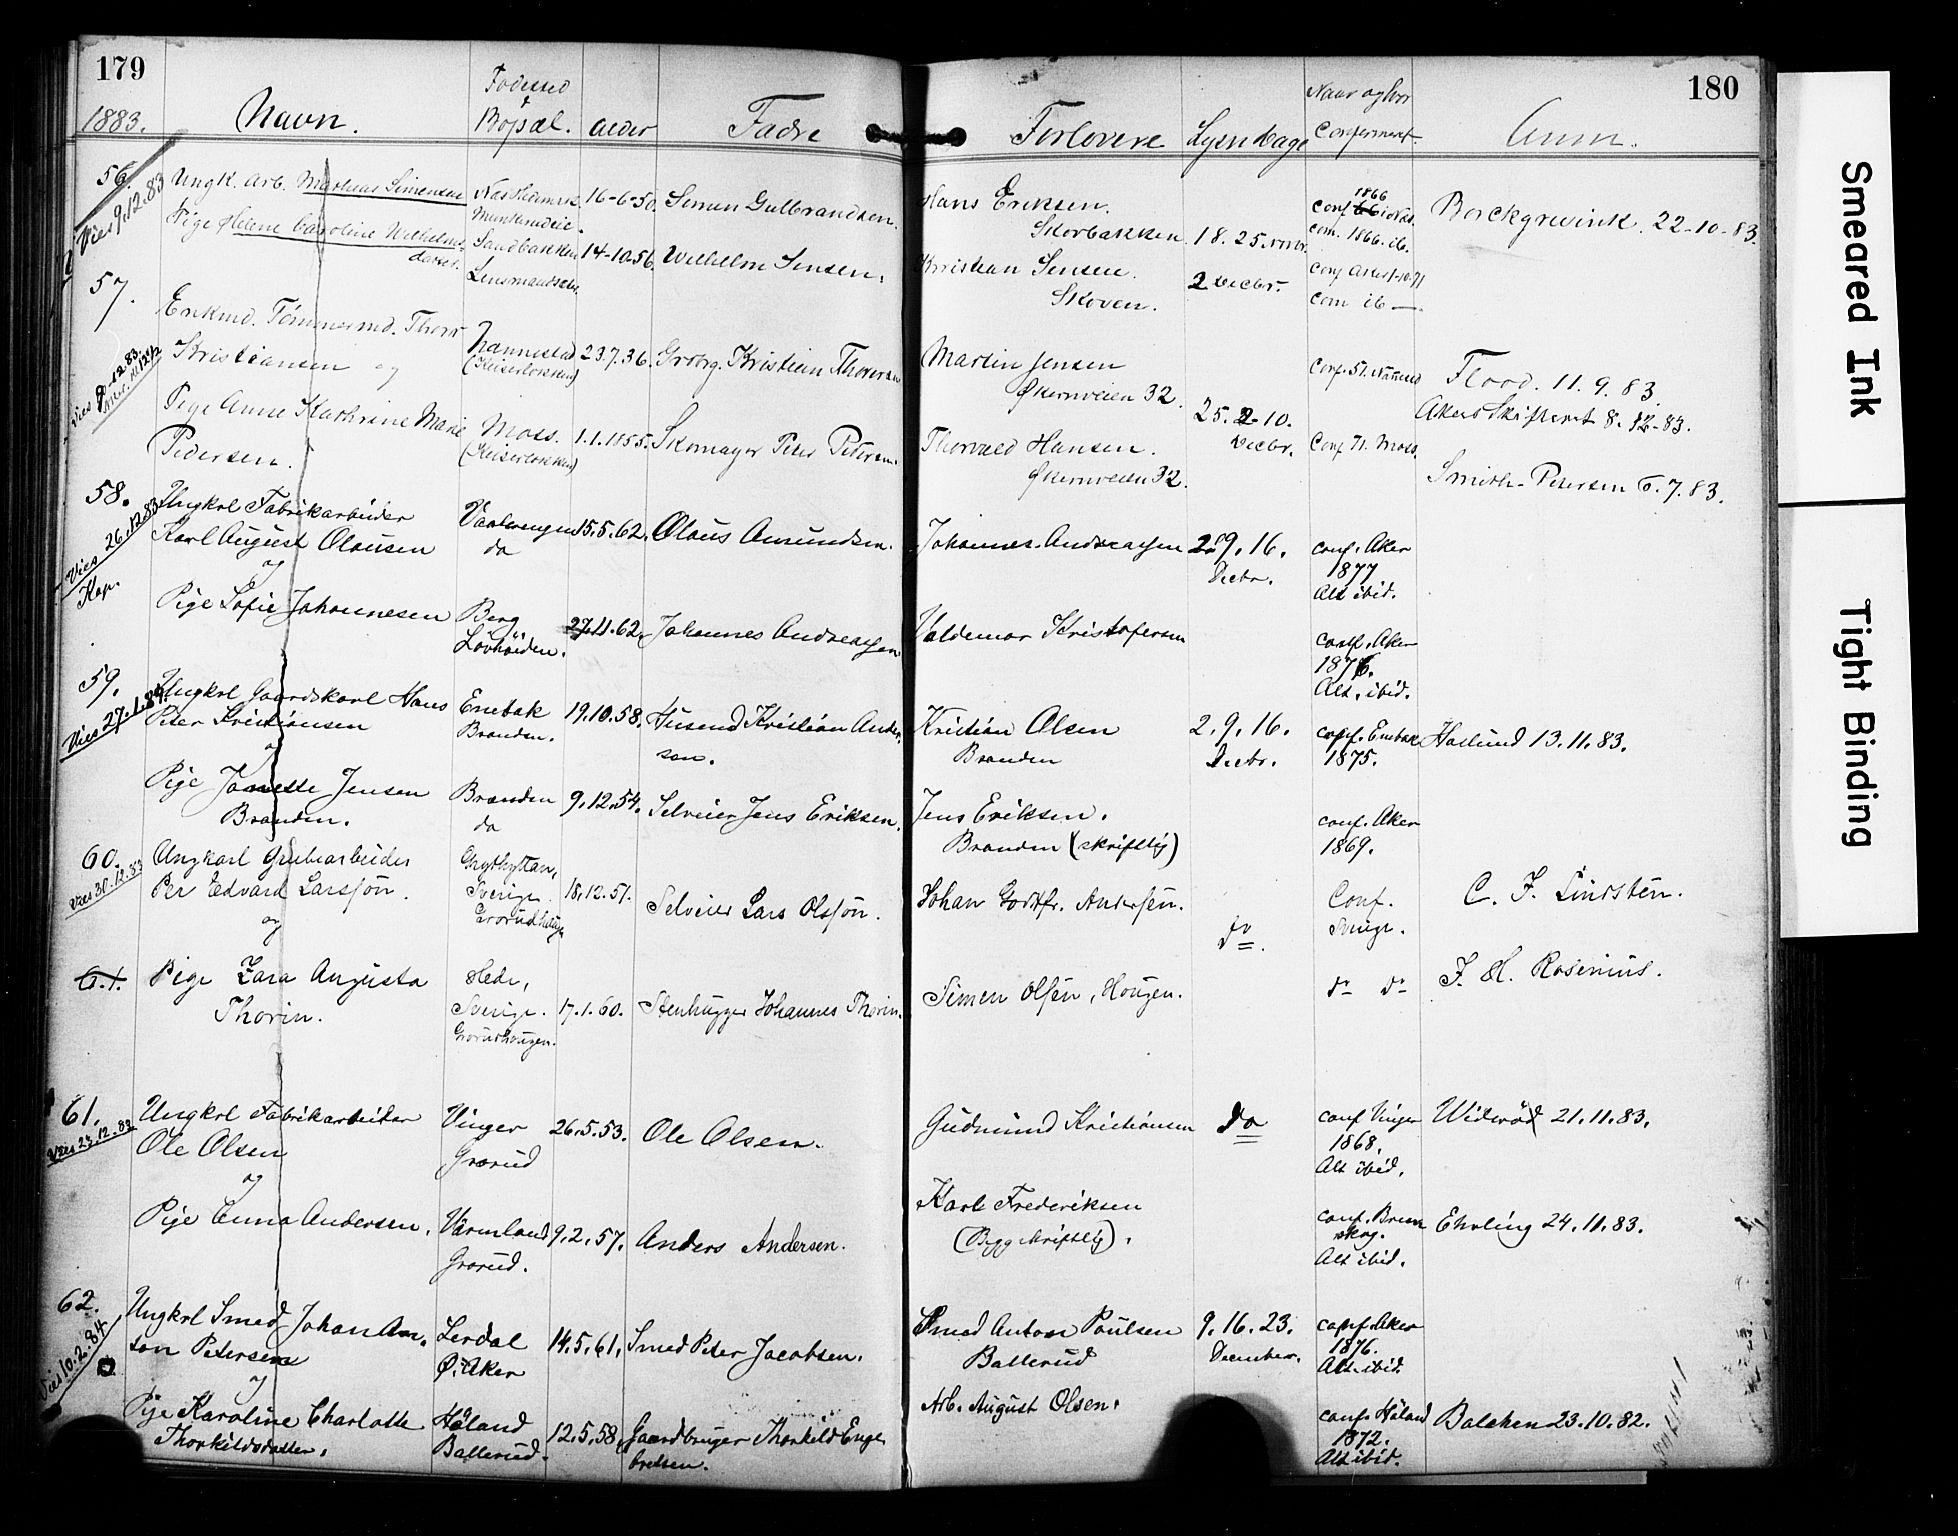 179
180
1883.
Navn.
Fødested
Bopæl.
Alder
Fadre
Forlovere
Lysn.dage
Naar og hvor
Confirmert.
Anm.
56.
Vies 9.12.83
Ungk. Arb. Mathias Simensen
Nas Hedemrk.
16-6-50.
Simen Gulbrandsen.
Hans Eriksen.
Skorbakken
18. 25. novbr.
1866
Conf. i Nas.
com. 1866. ib.
Borckgrevink. 22-10-83.
Pige Helene Caroline Wilhelms
datter.
Sandbakken
Lensmandseie.
14-10-56.
Wilhelm Jensen.
Kristian Jensen.
Skoven.
2 Decbr.
com ib —
57.
Enkmd. Tømmermd. Thor
Kristiansen og
Nannestad
(Keiserløkken)
23.7.36.
Grdbrg. Kristian Thoresen
Martin Jensen
Økernveien 32.
25. 2-10.
Decbr.
Conf. 51. Nannestad
Flood. 11.9.83.
Akers Skifteret 8.12-83.
Pige Anne Kathrine Marie
Pedersen.
Moss.
(Keiserløkken)
1.1.1855.
Skomager Peter Petersen.
Thorvald Hansen.
Økernveien 32.
Conf 71. Moss.
Smith-Petersen 6.7.83.
58.
Vies 26.12.83
Kap.
Ungkrl Fabrikarbeider
Karl August Olausen
og
Vaalerengen
do
15.5.62.
Olaus Amundsen.
Johannes Andreassen
2. 9. 16.
Decbr.
conf. Aker
1877
Alt ibid.
Pige Sofie Johannesen
Berg
Lövhöiden.
27.11.62.
Johannes Andreassen
Valdemar Kristofersen
conf. Aker
1876.
Alt. ibid.
59.
Vies 27.1.84.
Ungkrl Gaardskarl Hans
Peter Kristiansen
og
Enebak
Branden.
19.10.58.
Husmd Kristian Ander-
sen.
Kristian Olsen
Branden
2. 9. 16.
Decbr.
conf. Enebak
1875.
Haslund 13.11.83.
Pige Janette Jensen
Branden.
Branden
do
9.12.54.
Selveier Jens Eriksen.
Jens Eriksen.
Branden (skriftlig)
conf. Aker
1869.
60.
Vies 30.12.83
Ungkarl Grubearbeider
Per Edvard Larssön.
og
Grythyttan,
Sverige.
Grorudhaugen
18.12.51.
Selveier Lars Olssön.
Johan Gottfr. Andersen.
do.
Conf.
Sverige.
C. F. Lindsten.
61.
Pige Zara Augusta
Thorin.
Hede,
Sverige.
Grorudhaugen.
17.1.60.
Stenhugger Johannes Thorin.
Simen Olsen, Hougen.
do do
F. H. Rosenius.
61.
Vies 23.12.83
Ungkrl Fabrikarbeider
Ole Olsen
og
Vinger
Grorud
26.5.53.
Ole Olsen.
Gudmund Kristiansen
do
conf Vinger
1868.
Alt ibid.
Wideröd 21.11.83.
Pige Emma Andersen.
Värmland
Grorud.
9.2.57.
Anders Andersen.
Karl Frederiksen
(Begg skriftlig).
conf. Brun
skog.
Alt ibid.
Ehrling 24.11.83.
62.
Vies 10.2.84
Ungkrl Smed Johan An-
ton Petersen
og
Lerdal
Ø. Aker
14.5.61.
Smed Peter Jacobsen.
Smed Anton Paulsen
Ballerud
9. 16. 23.
December.
conf. Aker
1876.
Alt ibid.
Pige Karoline Charlotte
Thorkildsdatter.
Høland
Ballerud.
12.5.58.
Gaardbruger Thorkild Enge
bretsen.
Arb. August Olsen.
conf. Høland
1872.
Alt ibid.
Balchen 23.10.82.
Smeared Ink
Tight Binding